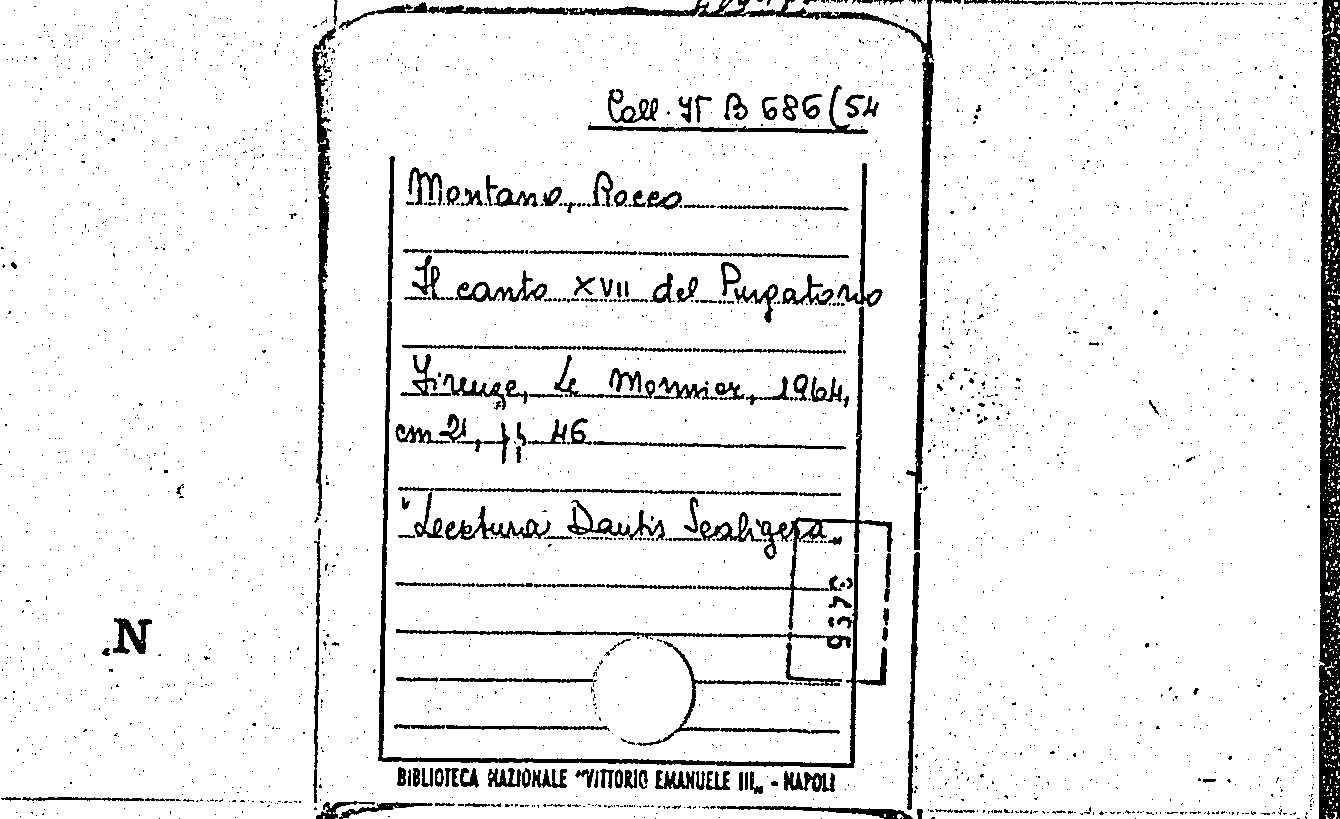 Coll. VI B 686 (54
Montano, Rocco
Il canto XVII del Purgatorio
Firenze, Le Monnier, 1964,
cm 21, pp 46
"Lectura Dantis Scaligera"
3495
N
BIBLIOTECA NAZIONALE "VITTORIO EMANUELE III„ - NAPOLI